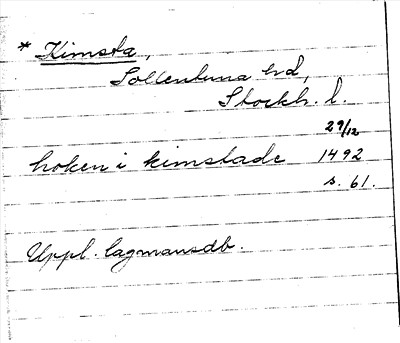 * Kimsta,
Sollentuna hd,
Stockh. l.
29/12
hoken i kimstade 1492
s. 61.
Uppl. lagmansdb.